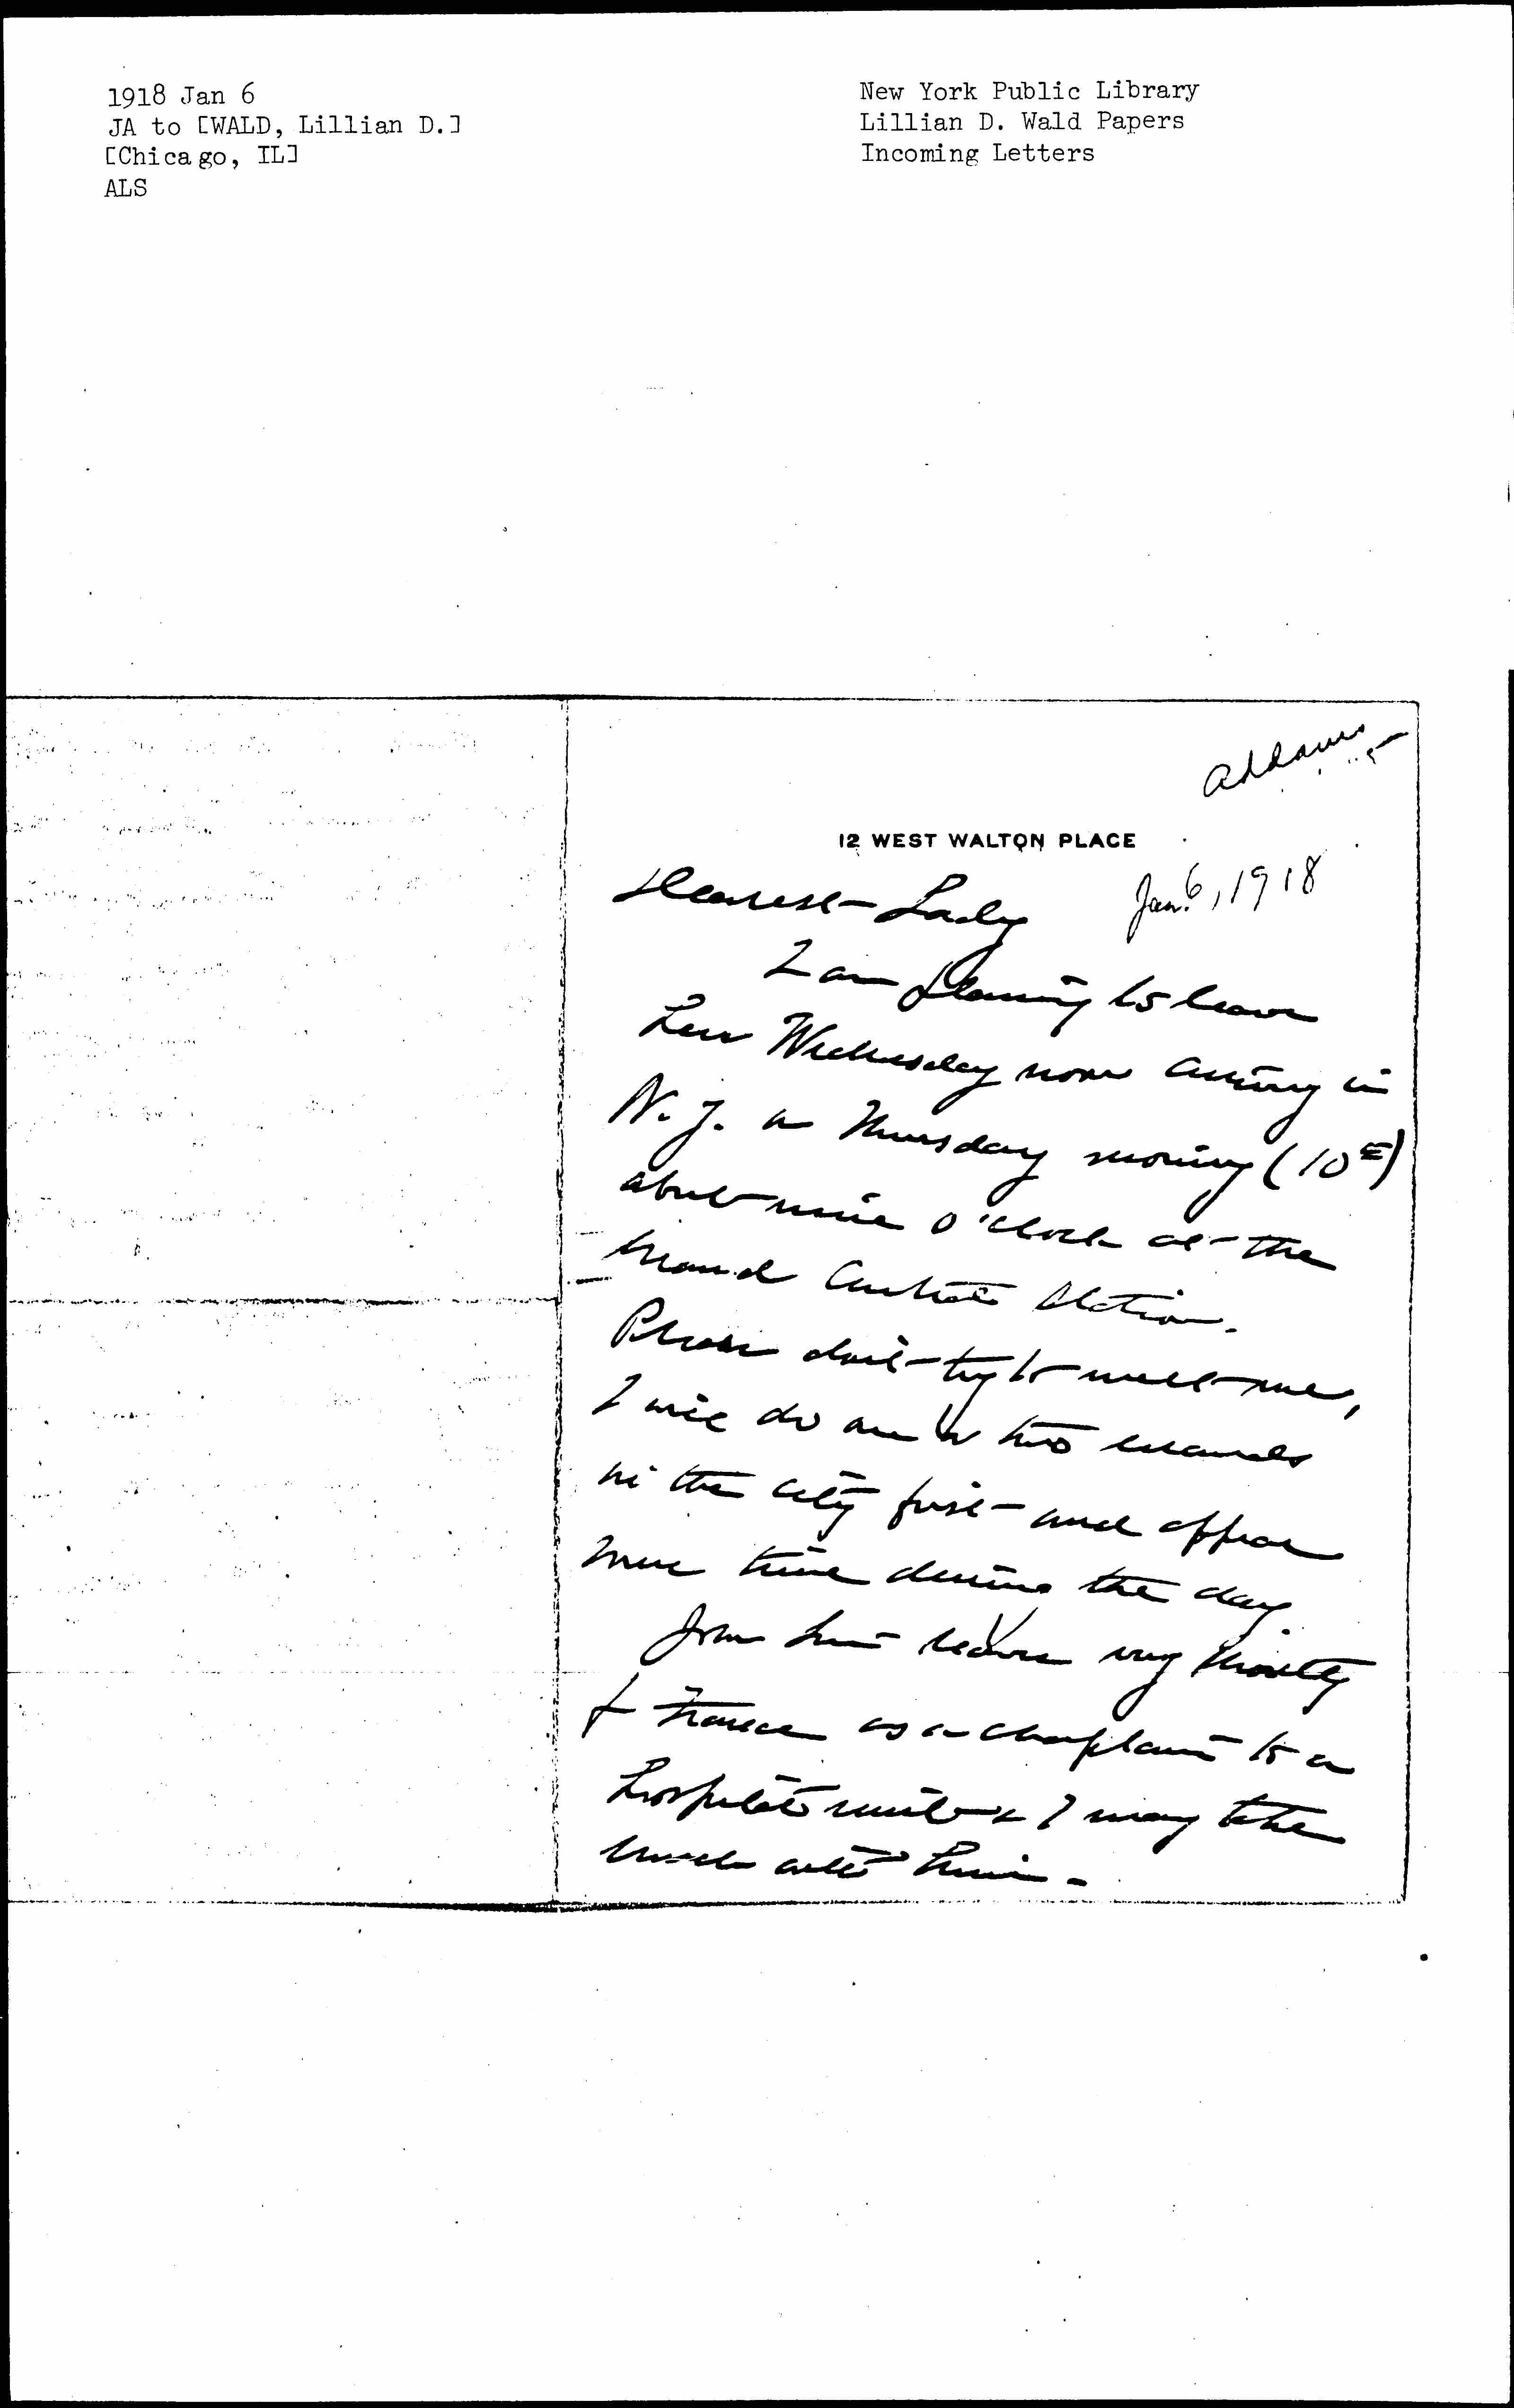 1918 Jan 6
JA to [WALD, Lillian D.]
[Chicago, IL]
ALS
New York Public Library
Lillian D. Wald Papers
Incoming Letters
Addams
12 WEST WALTON PLACE
Jan. 6, 1918
Dearest Lady
I am planning to leave
here Wednesday noon arriving in
N.Y. on Thursday morning (10th)
about nine o'clock at the
Grand Central Station.
Please don't try to meet me,
I will do one or two errands
in the city first and appear
some time during the day.
John Linn leaves very shortly
for France as a chaplain to a
hospital unit & I may take
lunch with him.